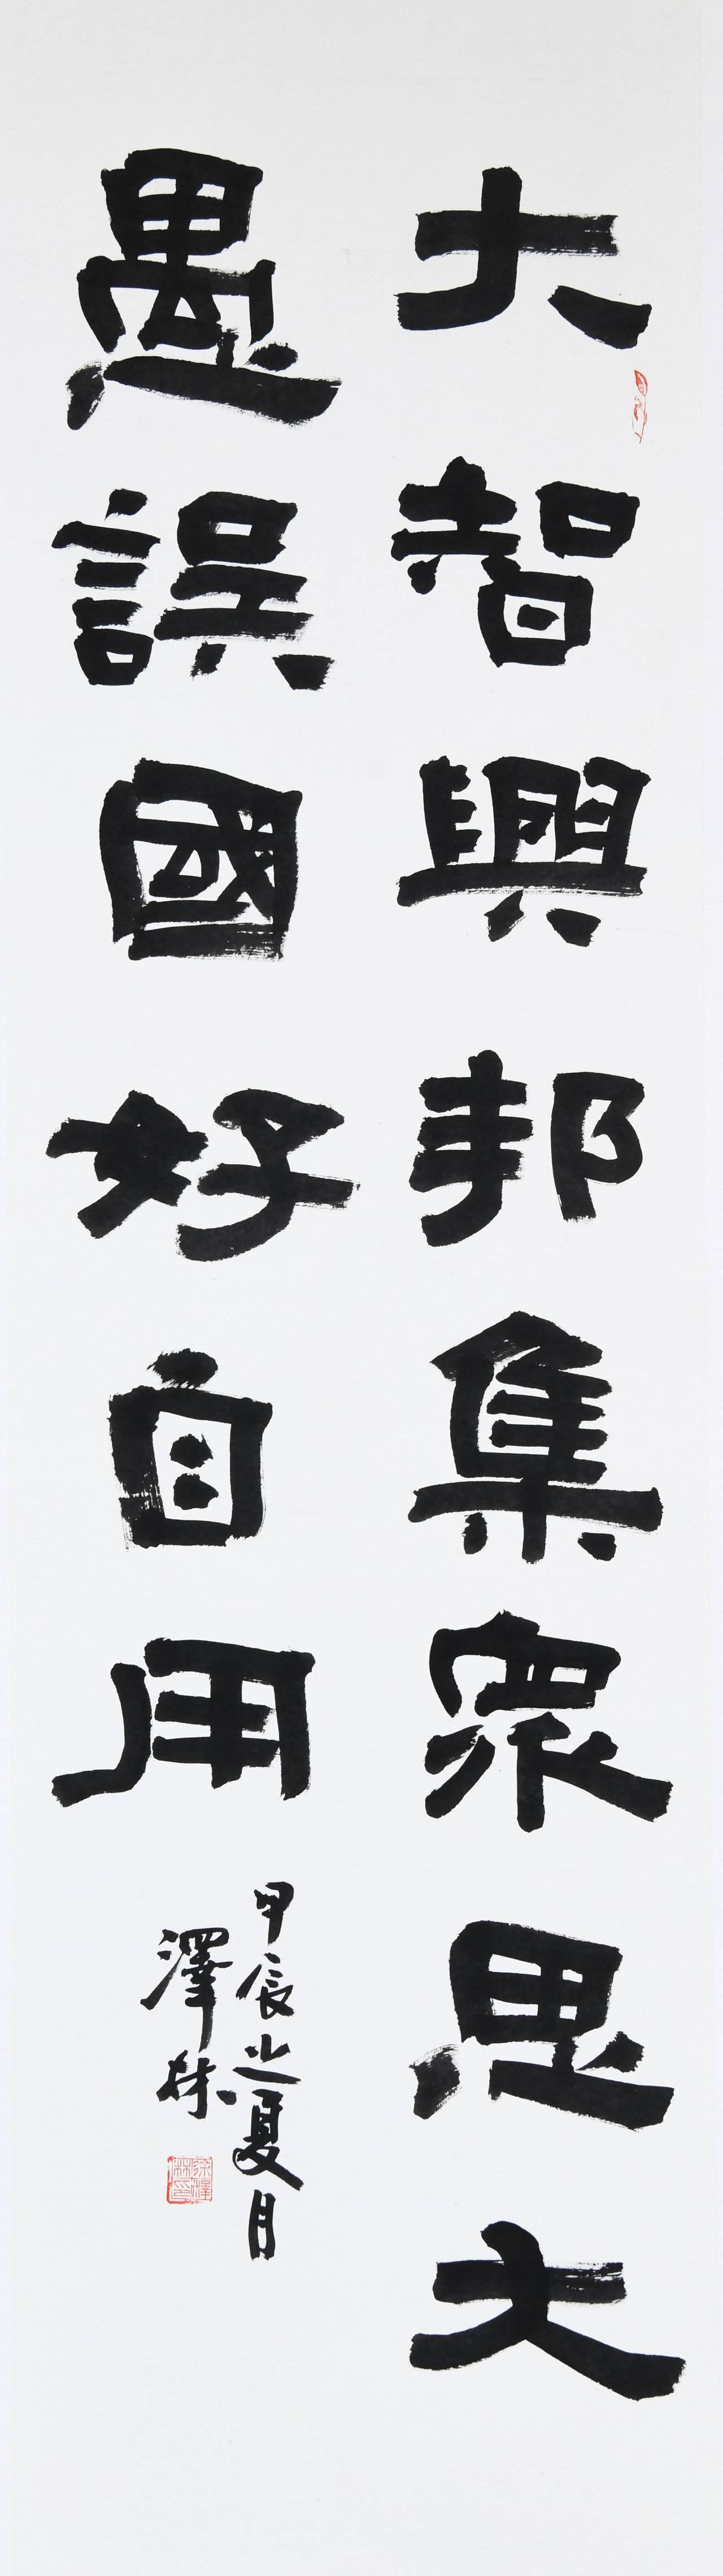 大智興邦集眾思大
愚誤國好自用
甲辰之夏月
澤林
徐澤林印